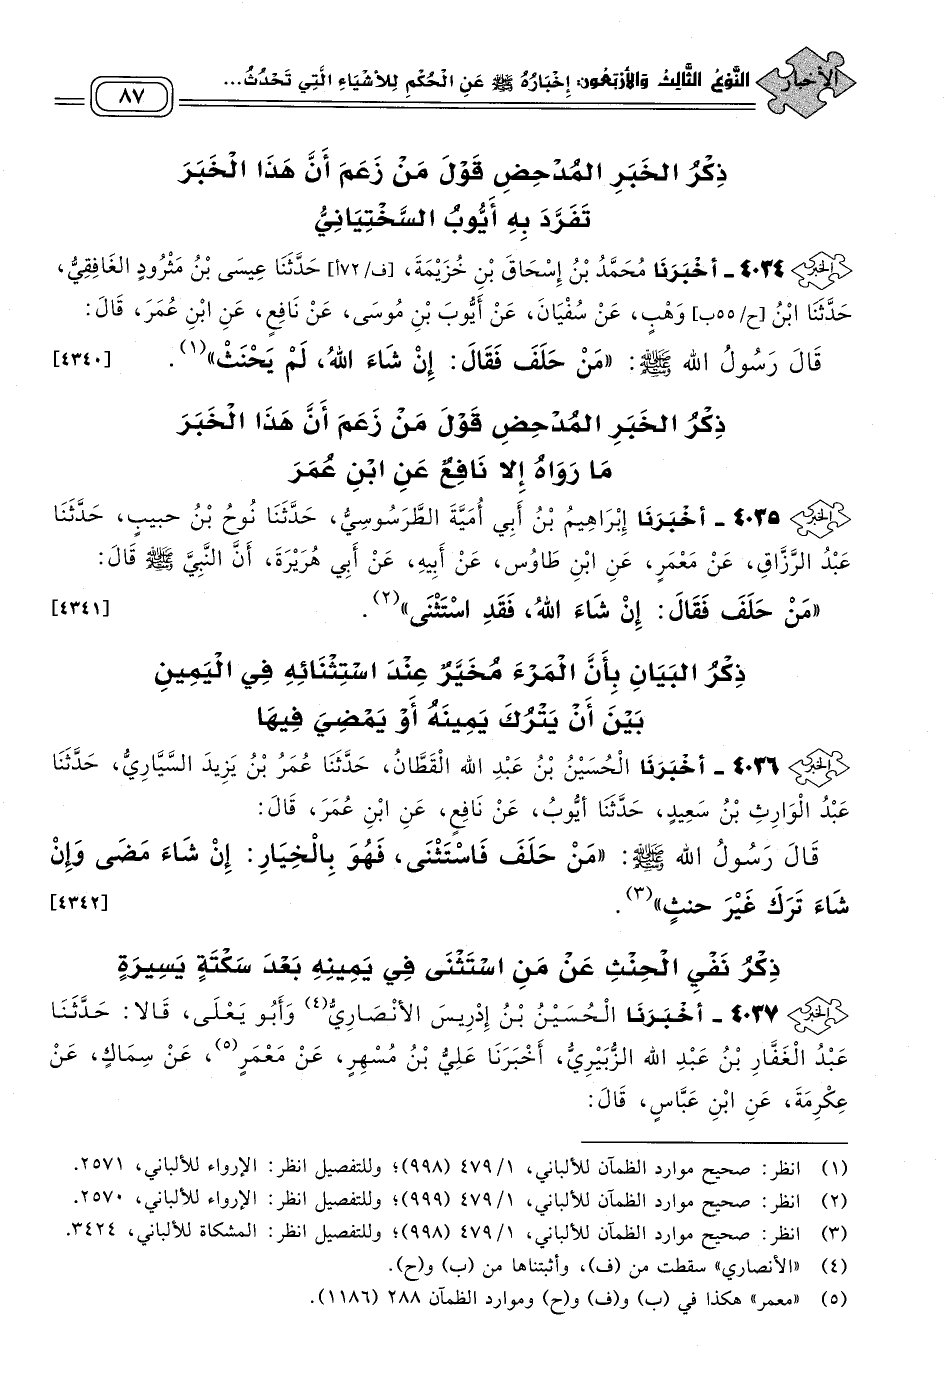 الأخبار
النَّوْعُ الثَّالِثُ وَالأَرْبَعُونَ: إِخْبَارُهُ ﷺ عَنِ الْحُكْمِ لِلأَشْيَاءِ الَّتِي تَحْدُثُ...
٨٧
ذِكْرُ الخَبَرِ المُدْحِضِ قَوْلَ مَنْ زَعَمَ أَنَّ هَذَا الْخَبَرَ
تَفَرَّدَ بِهِ أَيُّوبُ السَّخْتِيَانِيُّ
٤٠٣٤ ـ أَخْبَرَنَا مُحَمَّدُ بْنُ إِسْحَاقَ بْنِ خُزَيْمَةَ، [ف/٧٢أ] حَدَّثَنَا عِيسَى بْنُ مَثْرُودٍ الغَافِقِيُّ،
حَدَّثَنَا ابْنُ [ح/٥٥ب] وَهْبٍ، عَنْ سُفْيَانَ، عَنْ أَيُّوبَ بْنِ مُوسَى، عَنْ نَافِعٍ، عَنِ ابْنِ عُمَرَ، قَالَ:
قَالَ رَسُولُ اللهِ ﷺ: «مَنْ حَلَفَ فَقَالَ: إِنْ شَاءَ اللهُ، لَمْ يَحْنَثْ»(١). [٤٣٤٠]
ذِكْرُ الخَبَرِ المُدْحِضِ قَوْلَ مَنْ زَعَمَ أَنَّ هَذَا الْخَبَرَ
مَا رَوَاهُ إِلا نَافِعٌ عَنِ ابْنِ عُمَرَ
٤٠٣٥ ـ أَخْبَرَنَا إِبْرَاهِيمُ بْنُ أَبِي أُمَيَّةَ الطَّرَسُوسِيُّ، حَدَّثَنَا نُوحُ بْنُ حبيبٍ، حَدَّثَنَا
عَبْدُ الرَّزَّاقِ، عَنْ مَعْمَرٍ، عَنِ ابْنِ طَاوُسٍ، عَنْ أَبِيهِ، عَنْ أَبِي هُرَيْرَةَ، أَنَّ النَّبِيَّ ﷺ قَالَ:
«مَنْ حَلَفَ فَقَالَ: إِنْ شَاءَ اللهُ، فَقَدِ اسْتَثْنَى»(٢). [٤٣٤١]
ذِكْرُ البَيَانِ بِأَنَّ الْمَرْءَ مُخَيَّرٌ عِنْدَ اسْتِثْنَائِهِ فِي الْيَمِينِ
بَيْنَ أَنْ يَتْرُكَ يَمِينَهُ أَوْ يَمْضِيَ فِيهَا
٤٠٣٦ ـ أَخْبَرَنَا الْحُسَيْنُ بْنُ عَبْدِ اللهِ القَطَّانُ، حَدَّثَنَا عُمَرُ بْنُ يَزِيدَ السَّيَّارِيُّ، حَدَّثَنَا
عَبْدُ الْوَارِثِ بْنُ سَعِيدٍ، حَدَّثَنَا أَيُّوبُ، عَنْ نَافِعٍ، عَنِ ابْنِ عُمَرَ، قَالَ:
قَالَ رَسُولُ اللهِ ﷺ: «مَنْ حَلَفَ فَاسْتَثْنَى، فَهُوَ بِالْخِيَارِ: إِنْ شَاءَ مَضَى وَإِنْ
شَاءَ تَرَكَ غَيْرَ حنثٍ»(٣). [٤٣٤٢]
ذِكْرُ نَفْيِ الْحِنْثِ عَنْ مَنِ اسْتَثْنَى فِي يَمِينِهِ بَعْدَ سَكْتَةٍ يَسِيرَةٍ
٤٠٣٧ ـ أَخْبَرَنَا الْحُسَيْنُ بْنُ إِدْرِيسَ الأَنْصَارِيُّ(٤) وَأَبُو يَعْلَى، قَالا: حَدَّثَنَا
عَبْدُ الْغَفَّارِ بْنُ عَبْدِ اللهِ الزُّبَيْرِيُّ، أَخْبَرَنَا عَلِيُّ بْنُ مُسْهِرٍ، عَنْ مَعْمَرٍ(٥)، عَنْ سِمَاكٍ، عَنْ
عِكْرِمَةَ، عَنِ ابْنِ عَبَّاسٍ، قَالَ:
(١) انظر: صحيح موارد الظمآن للألباني، ٤٧٩/١ (٩٩٨)؛ وللتفصيل انظر: الإرواء للألباني، ٢٥٧١.
(٢) انظر: صحيح موارد الظمآن للألباني، ٤٧٩/١ (٩٩٩)؛ وللتفصيل انظر: الإرواء للألباني، ٢٥٧٠.
(٣) انظر: صحيح موارد الظمآن للألباني، ٤٧٩/١ (٩٩٨)؛ وللتفصيل انظر: المشكاة للألباني، ٣٤٢٤.
(٤) «الأنصاري» سقطت من (ف)، وأثبتناها من (ب) و(ح).
(٥) «معمر» هكذا في (ب) و(ف) و(ح) وموارد الظمآن ٢٨٨ (١١٨٦).